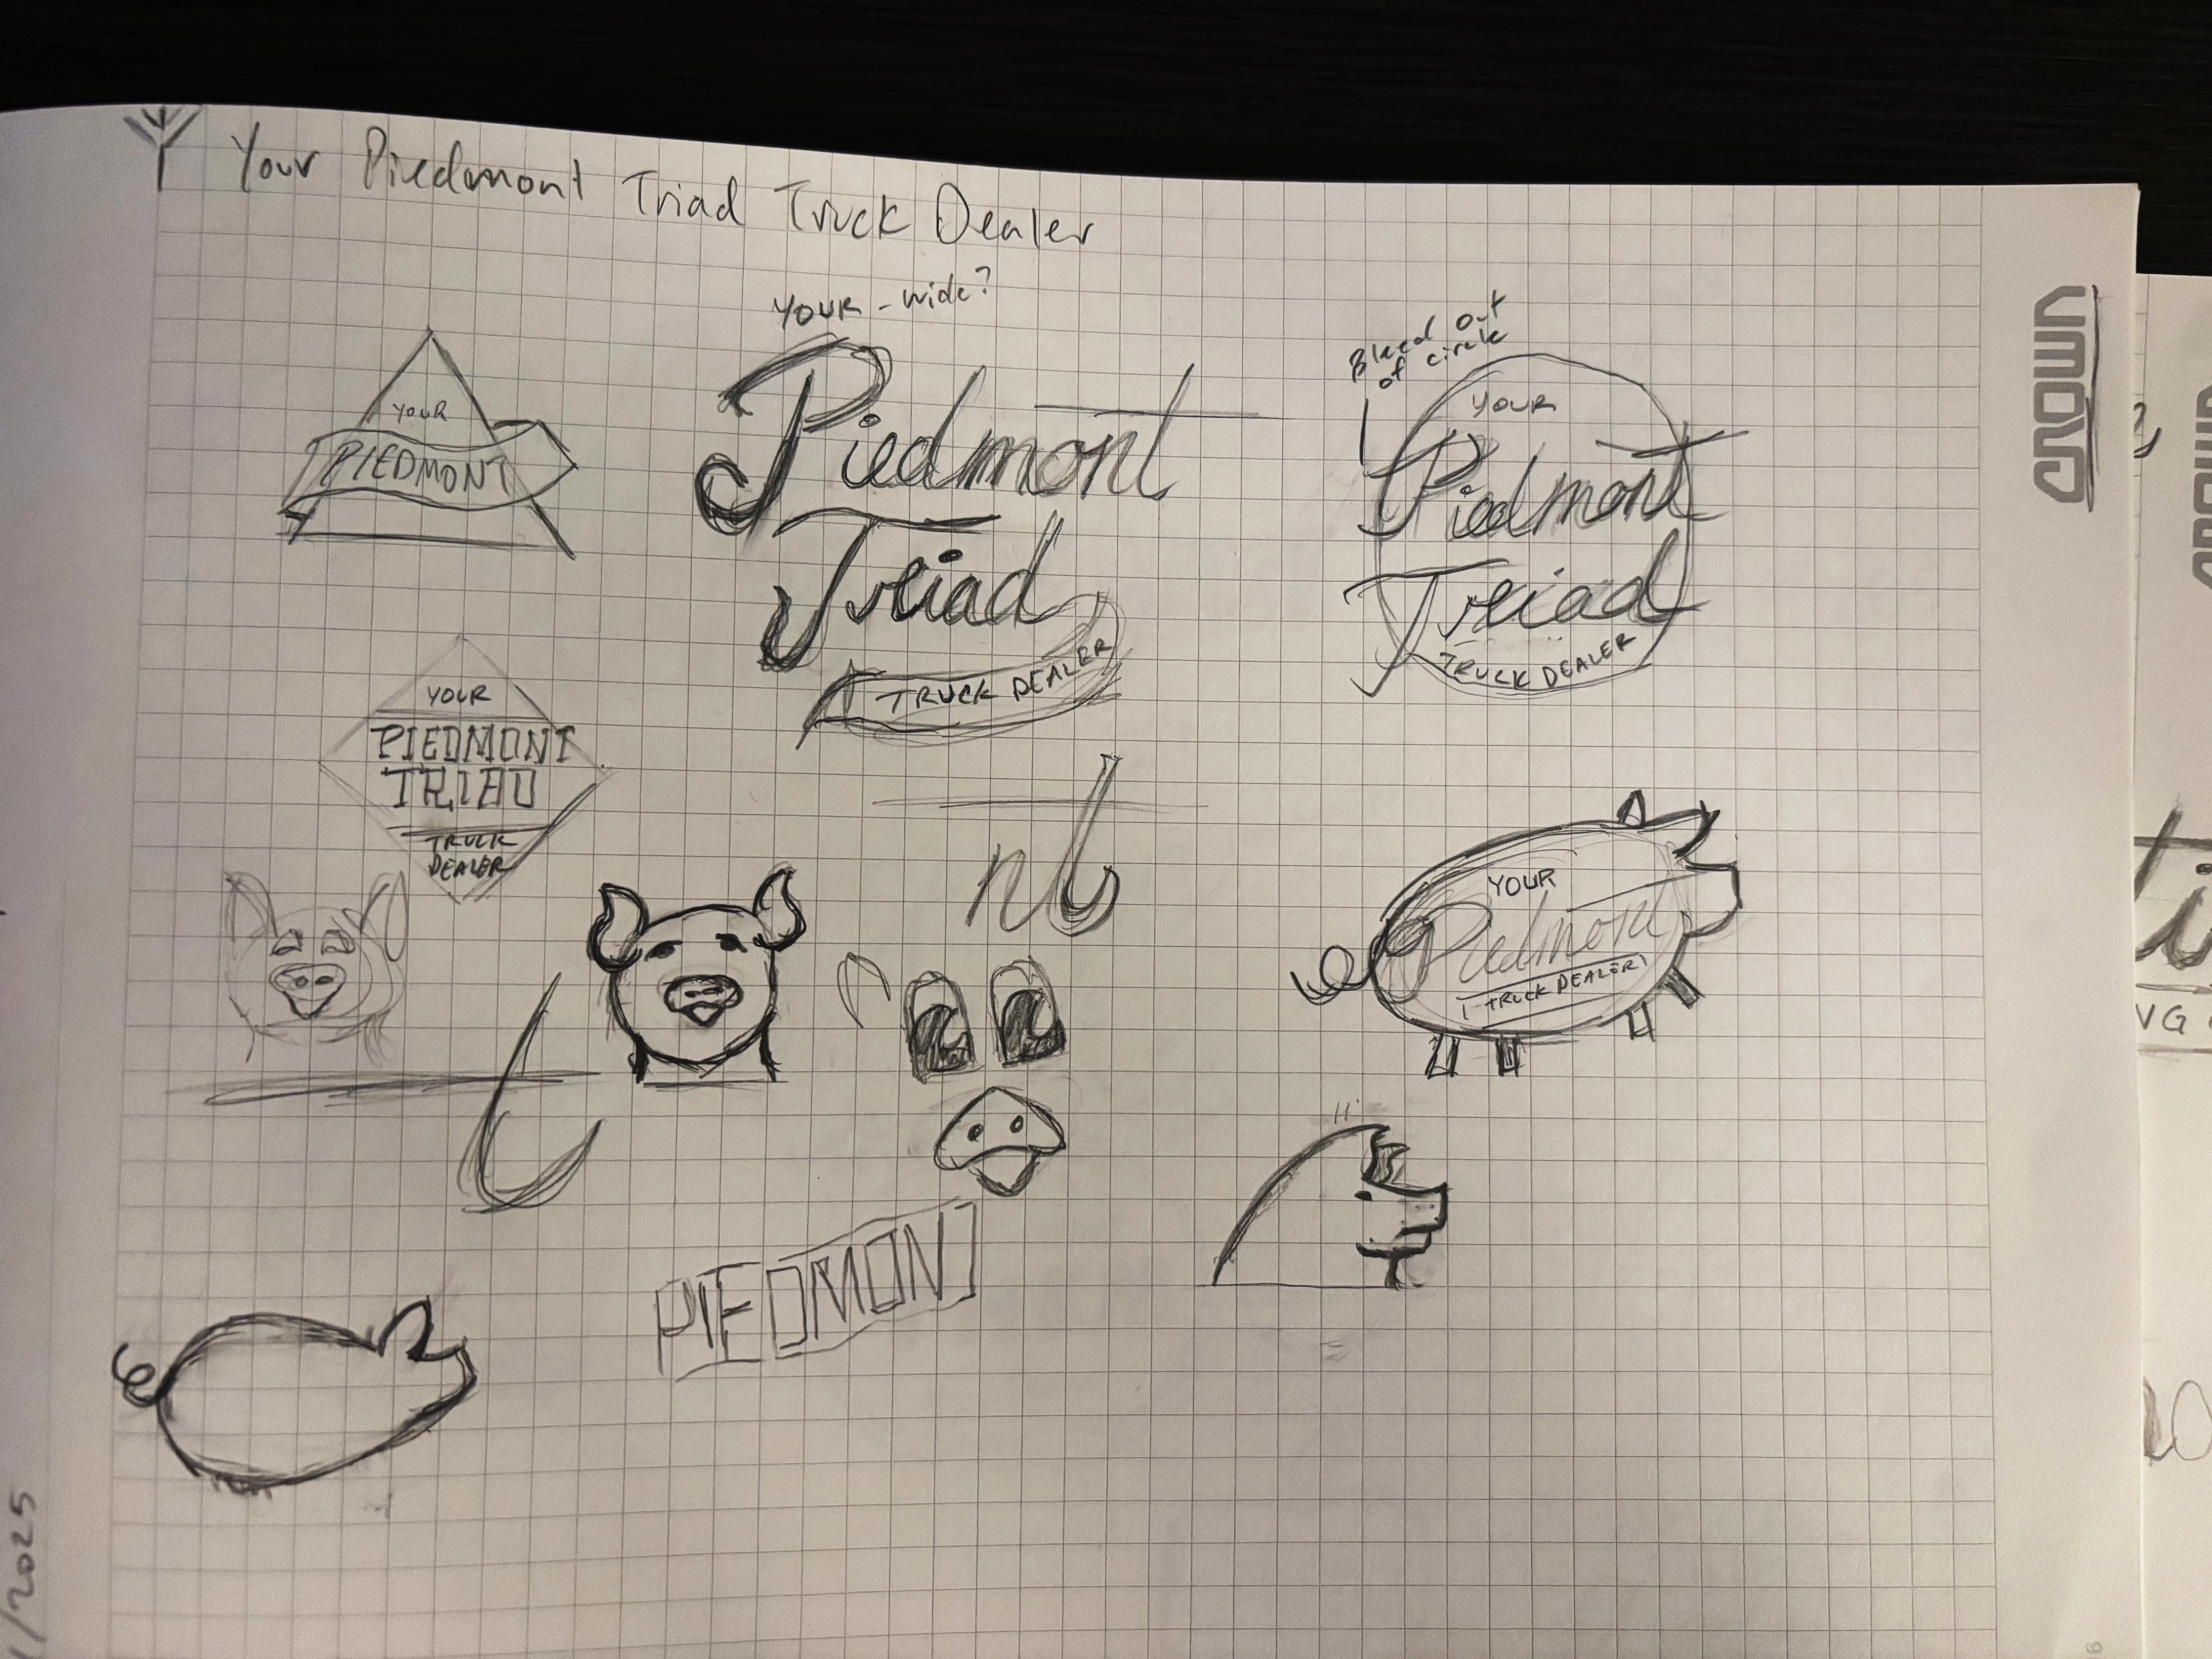 Your Piedmont Triad Truck Dealer
YOUR - wide?
Piedmont
Triad
TRUCK DEALER
Bleed out
of circle
YOUR
Piedmont
Triad
TRUCK DEALER
CROWN
YOUR
PIEDMONT
YOUR
PIEDMONT
TRIAD
TRUCK
DEALER
nt
YOUR
Piedmont
TRUCK DEALER
PIEDMONT
1/2025